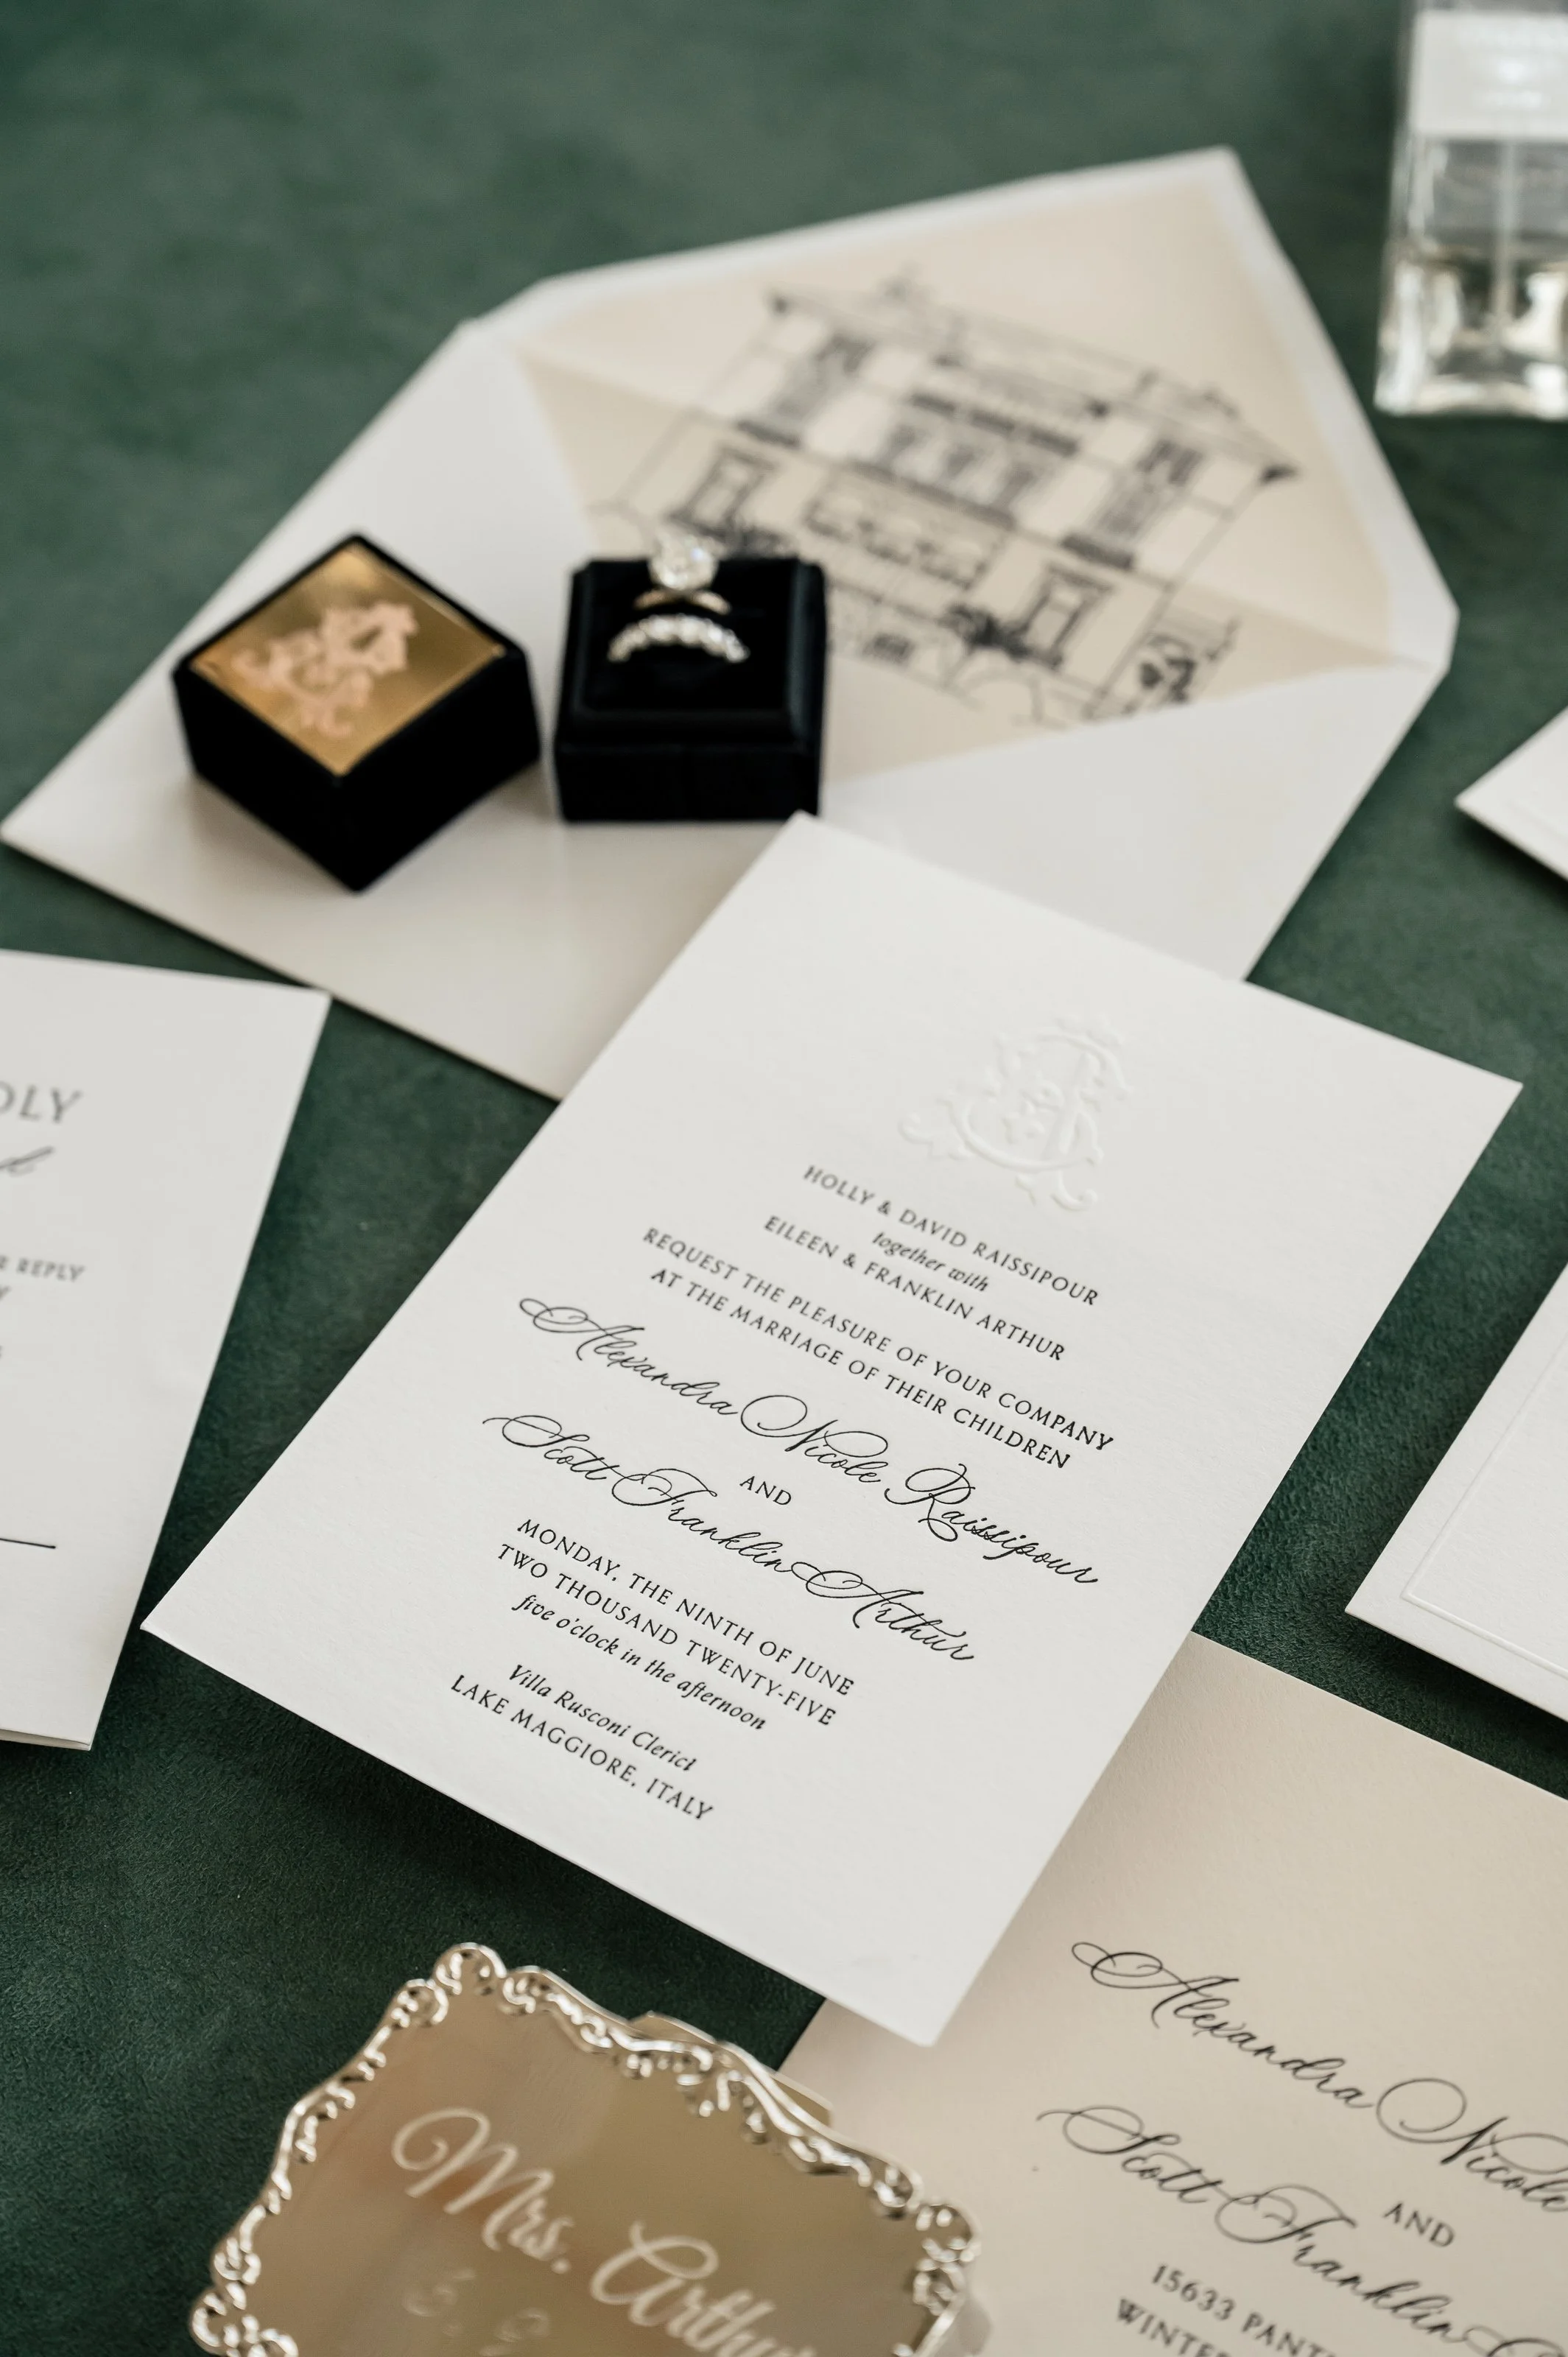 HOLLY & DAVID RAISSIPOUR
together with
EILEEN & FRANKLIN ARTHUR
REQUEST THE PLEASURE OF YOUR COMPANY
AT THE MARRIAGE OF THEIR CHILDREN
Alexandra Nicole Raissipour
AND
Scott Franklin Arthur
MONDAY, THE NINTH OF JUNE
TWO THOUSAND TWENTY-FIVE
five o'clock in the afternoon
Villa Rusconi Clerici
LAKE MAGGIORE, ITALY
REPLY
Alexandra Nicole
AND
Scott Franklin
15633
Mrs.